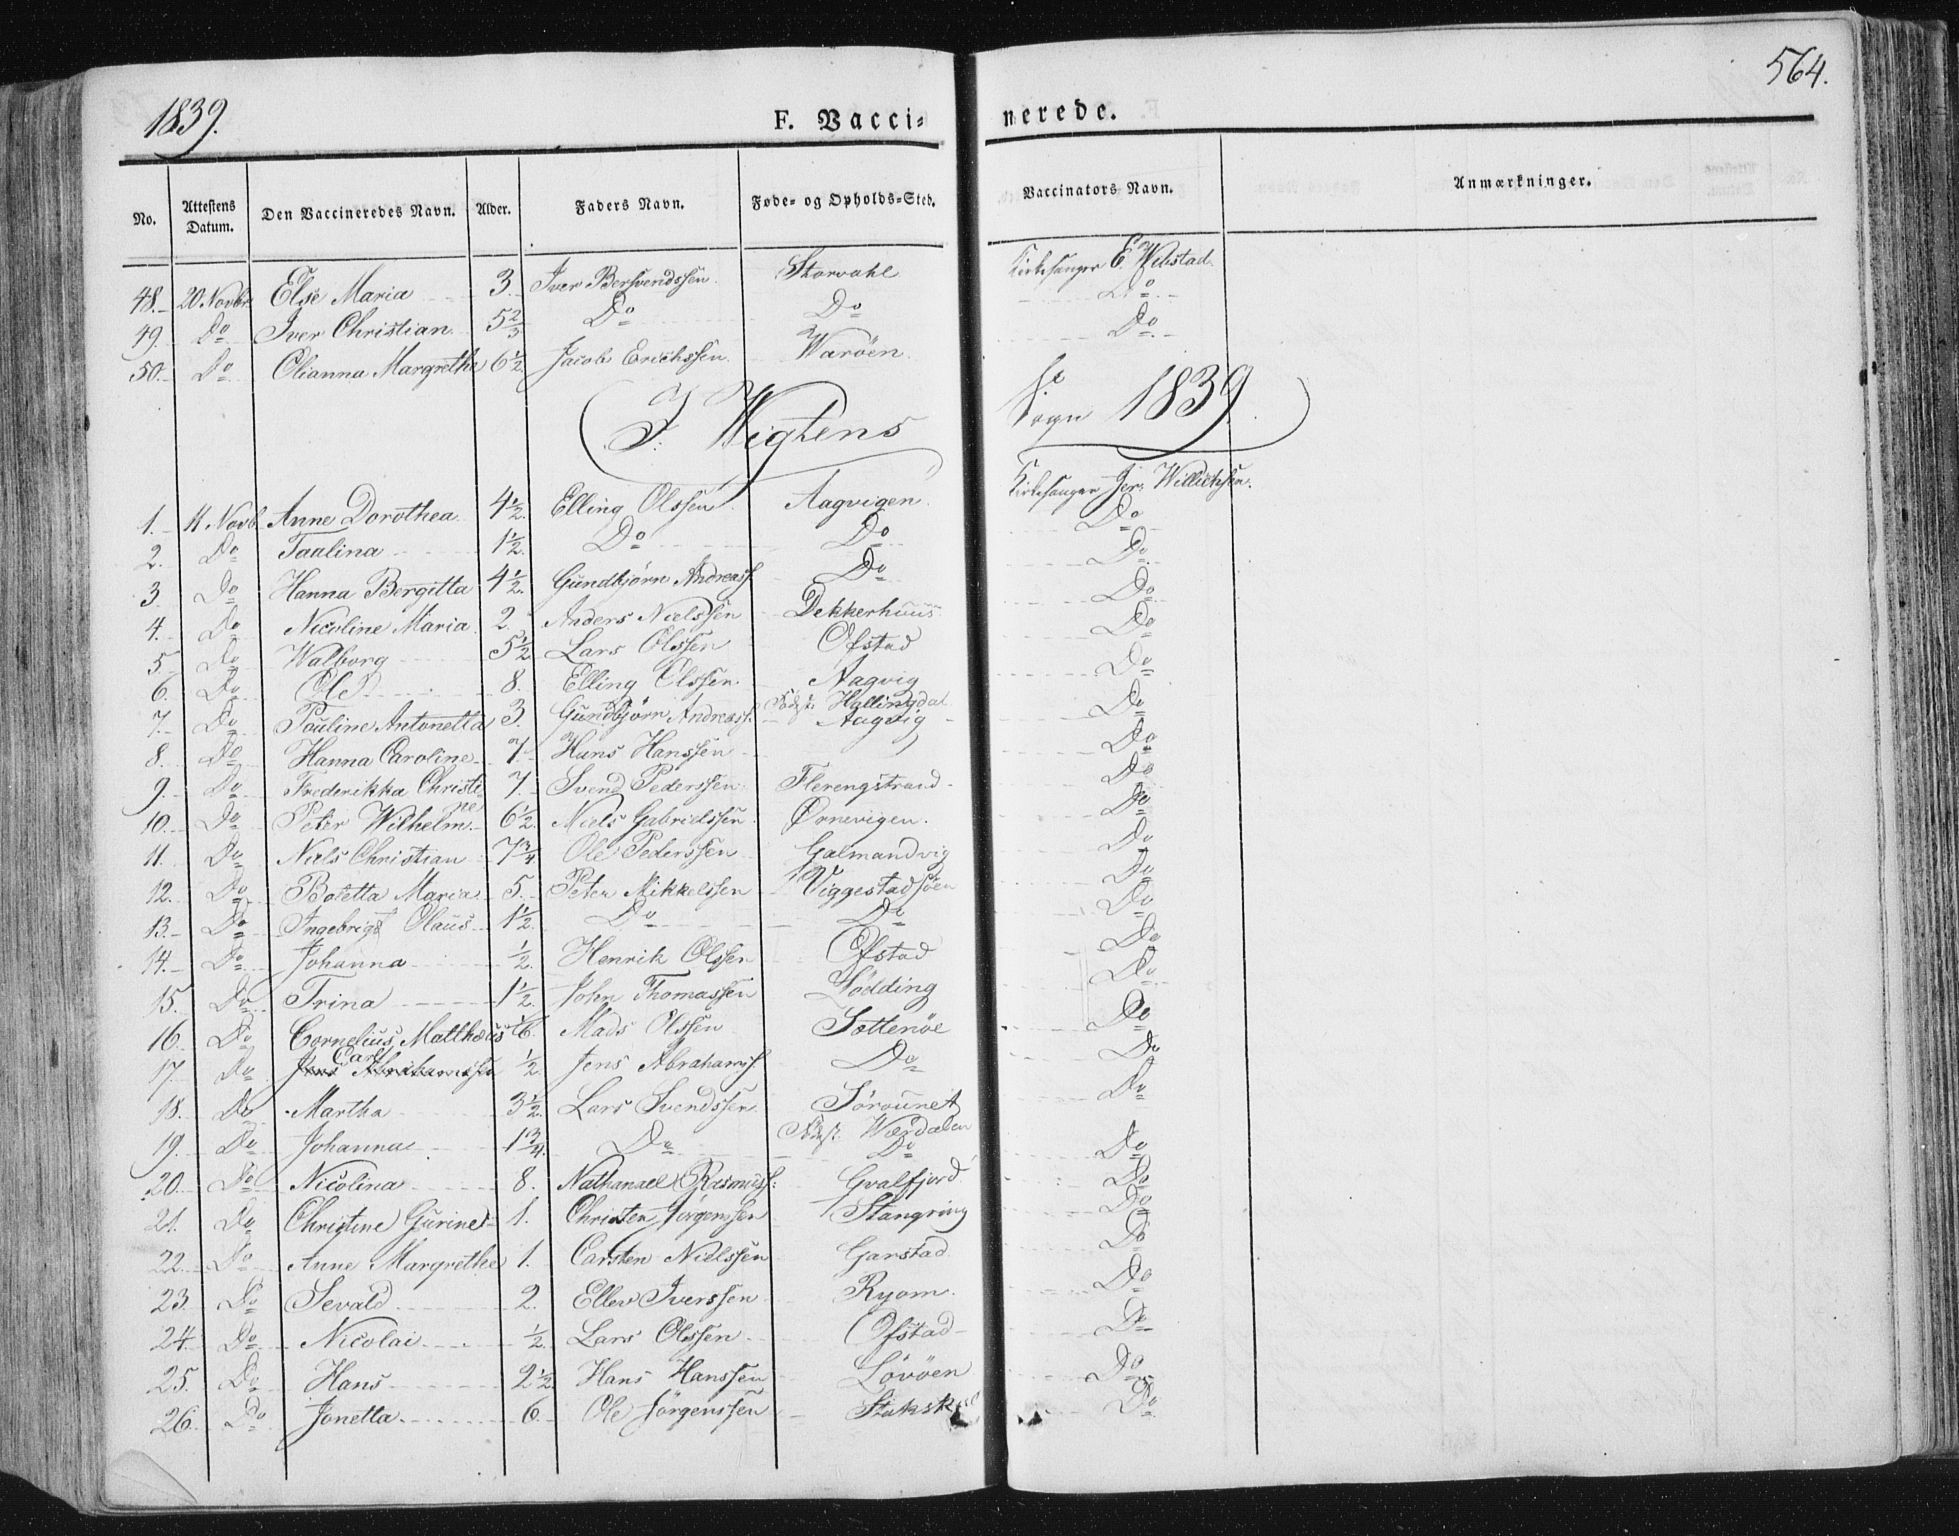 1839.
564.
F. Vaccinerede.
No. Attestens Datum. Den Vaccineredes Navn. Alder. Faders Navn. Føde- og Opholds-Sted. Vaccinators Navn. Anmærkninger.
48. 20 Novbr Else Maria 3 Iver Bersvendssen Storvahl Kirkesanger E. Webstad
49 Do Iver Christian 5 2/3 Do Do Do
50. Do Olianna Margretha 6 1/2 Jacob Erichssen Warøen Do
I Wigtens Sogn 1839
Kirkesanger Jer: Willichsen.
1. 11 Novb. Anne Dorothea 4 1/2 Elling Olssen Aagvigen Do
2. Do Taalina 1 1/2 Do Do Do
3 Do Hanna Bergitta 4 1/2 Gundbjørn Andreass. Do Do
4. Do Nicoline Maria 2. Anders Nielssen Dekkerhuus Do
5 Do Walborg 5 1/2 Lars Olssen Ofstad Do
6. Do Ole 8. Elling Olssen Aagvig Do
7. Do Pauline Antonetta 3. Gundbjørn Andreass. Fødst: Hallingdal Aagvig Do
8. Do Hanna Caroline 7. Hans Hanssen Do
9. Do Frederikka Christine 7. Svend Pederssen Flerengstrand Do
10. Do Peter Wilhelm 6 1/2 Niels Gabrielssen Øvnevigen. Do
11. Do Niels Christian 7 3/4 Ole Pederssen Galmandvig Do
12. Do Boletta Maria 5. Peter Mikkelssen Viggestadsøen Do
13. Do Ingebrigt Olaus 1 1/2 Do Do Do
14. Do Johanna 1/2 Henrik Olssen Ofstad Do
15. Do Trina 1 1/2 John Thomassen Lødding Do
16. Do Cornelius Matthæus 1/6 Mads Olssen Sættenøe Do
17 Do Carl 1/2 Jens Abrahamss. Do Do
18. Do Martha 3 1/2 Lars Svendssen Sørounet Do
19. Do Johanna 1 3/4 Do Fødst: Værdalen Do Do
20. Do Nicolina 8. Nathanael Rasmuss: Gvalfjord Do
21. Do Christine Gurine 1. Christen Jørgenssen Stangring Do
22. Do Anne Margrethe 1. Carsten Nielssen Garstad Do
23. Do Sevald 2. Ellev Iverssen Ryom. Do
24. Do Nicolai 1/2 Lars Olssen Ofstad Do
25. Do Hans 2 1/2 Hans Hanssen Løvøen Do
26. Do Jonetta 6 Ole Jørgenssen Do